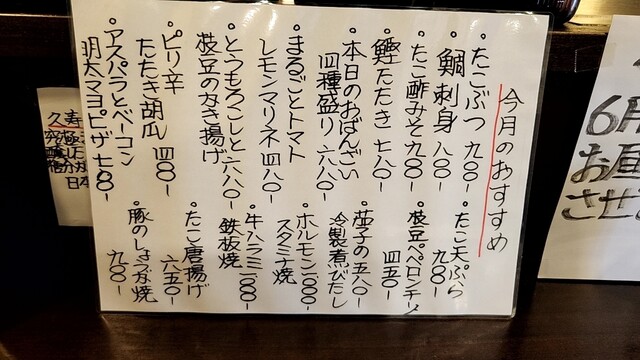 今月のおすすめ
・たこぶつ 九〇〇-
・鯛刺身 八〇〇-
・たこ酢みそ 九〇〇-
・鰹たたき 七八〇-
・本日のおばんざい
四種盛り 六八〇-
・まるごとトマト
レモンマリネ 四八〇-
・とうもろこしと 六八〇-
枝豆のかき揚げ
・ピリ辛
たたき胡瓜 四〇〇-
・アスパラとベーコン
明太マヨピザ 七八〇〇-
・たこ天ぷら
九〇〇-
・枝豆ペペロンチーノ
四五〇-
・茄子の 五八〇-
冷製煮びたし
・ホルモン 1000-
スタミナ焼
・牛ハラミ 1000-
鉄板焼
・たこ唐揚げ
六五〇-
・豚のしょうが焼
九〇〇-
6月
お昼
させ
久寿
日本